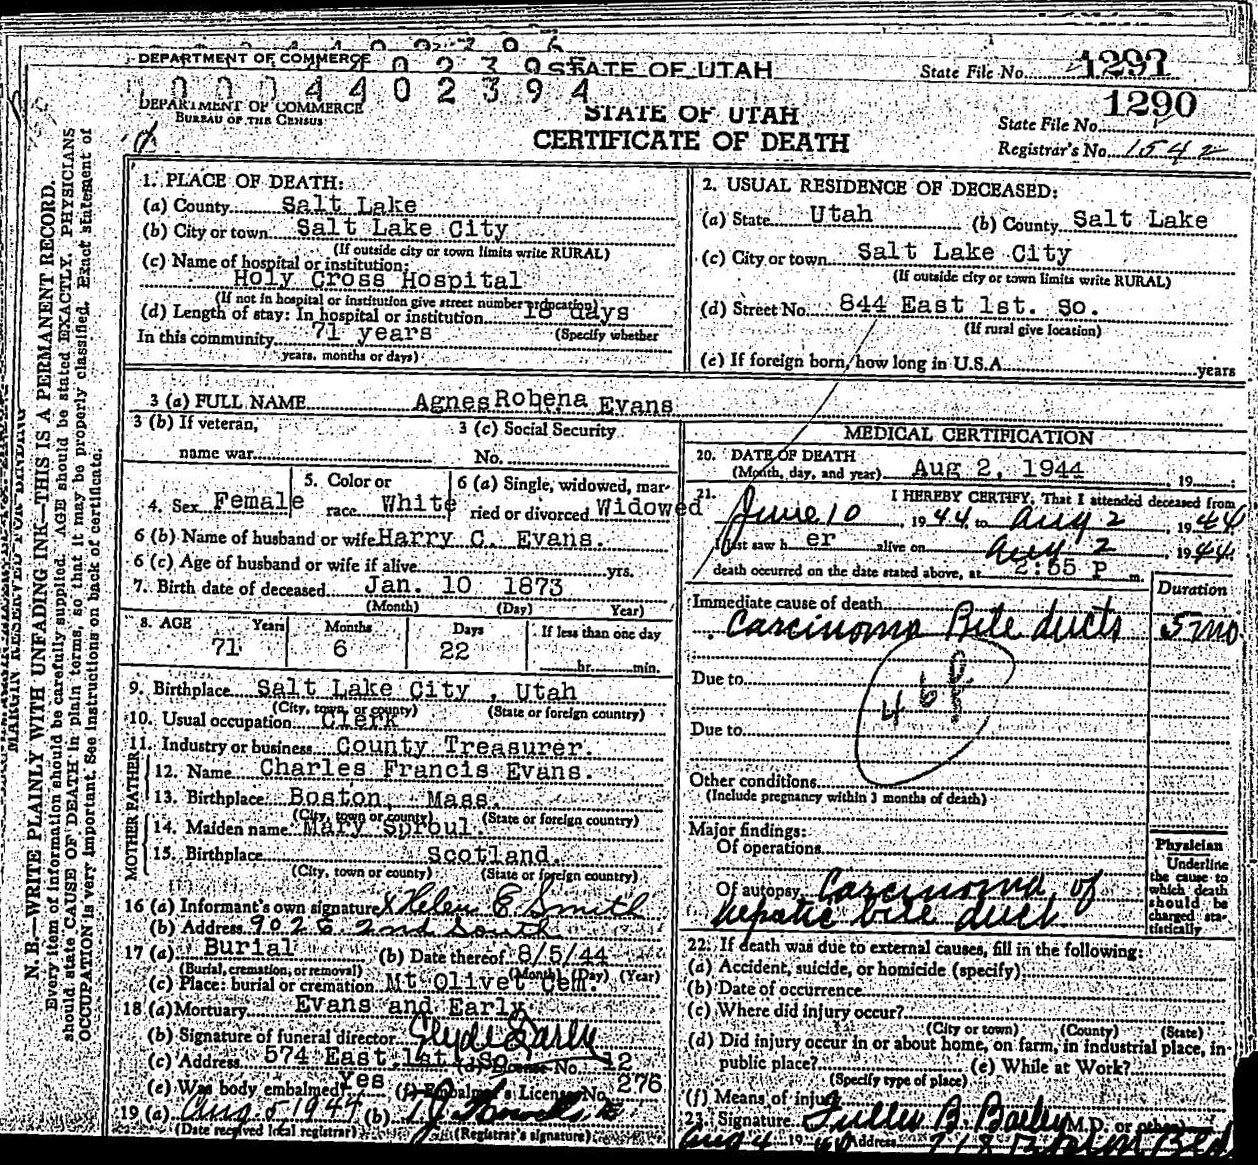 DEPARTMENT OF COMMERCE
STATE OF UTAH
State File No. 1291
0 0 0 4 4 0 2 3 9 4
DEPARTMENT OF COMMERCE
BUREAU OF THE CENSUS
STATE OF UTAH
CERTIFICATE OF DEATH
1290
State File No.
Registrar's No. 1542
MARGIN RESERVED FOR BINDING
N. B.—WRITE PLAINLY WITH UNFADING INK—THIS IS A PERMANENT RECORD.
Every item of information should be carefully supplied. AGE should be stated EXACTLY. PHYSICIANS
should state CAUSE OF DEATH in plain terms, so that it may be properly classified. Exact statement of
OCCUPATION is very important. See instructions on back of certificate.
1. PLACE OF DEATH:
(a) County Salt Lake
(b) City or town Salt Lake City
(If outside city or town limits write RURAL)
(c) Name of hospital or institution:
Holy Cross Hospital
(If not in hospital or institution give street number or location)
(d) Length of stay: In hospital or institution 18 days
(Specify whether
In this community 71 years
years, months or days)
2. USUAL RESIDENCE OF DECEASED:
(a) State Utah (b) County Salt Lake
(c) City or town Salt Lake City
(If outside city or town limits write RURAL)
(d) Street No. 844 East 1st. So.
(If rural give location)
(e) If foreign born, how long in U.S.A. years
3 (a) FULL NAME Agnes Robena Evans
3 (b) If veteran,
name war
3 (c) Social Security
No.
4. Sex Female
5. Color or
race White
6 (a) Single, widowed, mar-
ried or divorced Widowed
6 (b) Name of husband or wife Harry C. Evans.
6 (c) Age of husband or wife if alive yrs.
7. Birth date of deceased Jan. 10 1873
(Month) (Day) Year)
8. AGE Years Months Days If less than one day
71 6 22 hr. min.
9. Birthplace Salt Lake City, Utah
(City, town, or county) (State or foreign country)
10. Usual occupation Clerk
11. Industry or business County Treasurer.
MOTHER FATHER
12. Name Charles Francis Evans.
13. Birthplace Boston, Mass.
(City, town or county) (State or foreign country)
14. Maiden name Mary Sproul.
15. Birthplace Scotland.
(City, town or county) (State or foreign country)
16 (a) Informant's own signature x Helen E Smith
(b) Address 902 E. 2nd South
17 (a) Burial (b) Date thereof 8/5/44
(Burial, cremation, or removal) (Month) (Day) (Year)
(c) Place: burial or cremation Mt Olivet Cem.
18 (a) Mortuary Evans and Early
(b) Signature of funeral director Clyde Early
(c) Address 574 East 1st. So (d) License No. 12
(e) Was body embalmed Yes (f) Embalm's License No. 276
19 (a) Aug 5 1944 (b)
(Date received local registrar) (Registrar's signature)
MEDICAL CERTIFICATION
20. DATE OF DEATH
(Month, day, and year) Aug 2, 1944, 19
21. I HEREBY CERTIFY, That I attended deceased from
June 10, 1944 to Aug 2, 1944
last saw h er alive on Aug 2, 1944
death occurred on the date stated above, at 2:55 P m.
Duration
Immediate cause of death
Carcinoma Bile ducts 5 mo.
Due to
46f
Due to
Other conditions
(Include pregnancy within 3 months of death)
Major findings:
Of operations
Of autopsy Carcinoma of
hepatic bile duct
Physician
Underline
the cause to
which death
should be
charged sta-
tistically
22. If death was due to external causes, fill in the following:
(a) Accident, suicide, or homicide (specify):
(b) Date of occurrence
(c) Where did injury occur?
(City or town) (County) (State)
(d) Did injury occur in or about home, on farm, in industrial place, in
public place? (e) While at Work?
(Specify type of place)
(f) Means of injury
23. Signature Fuller B. Bailey M.D. or other
Aug 4 19 Address 718